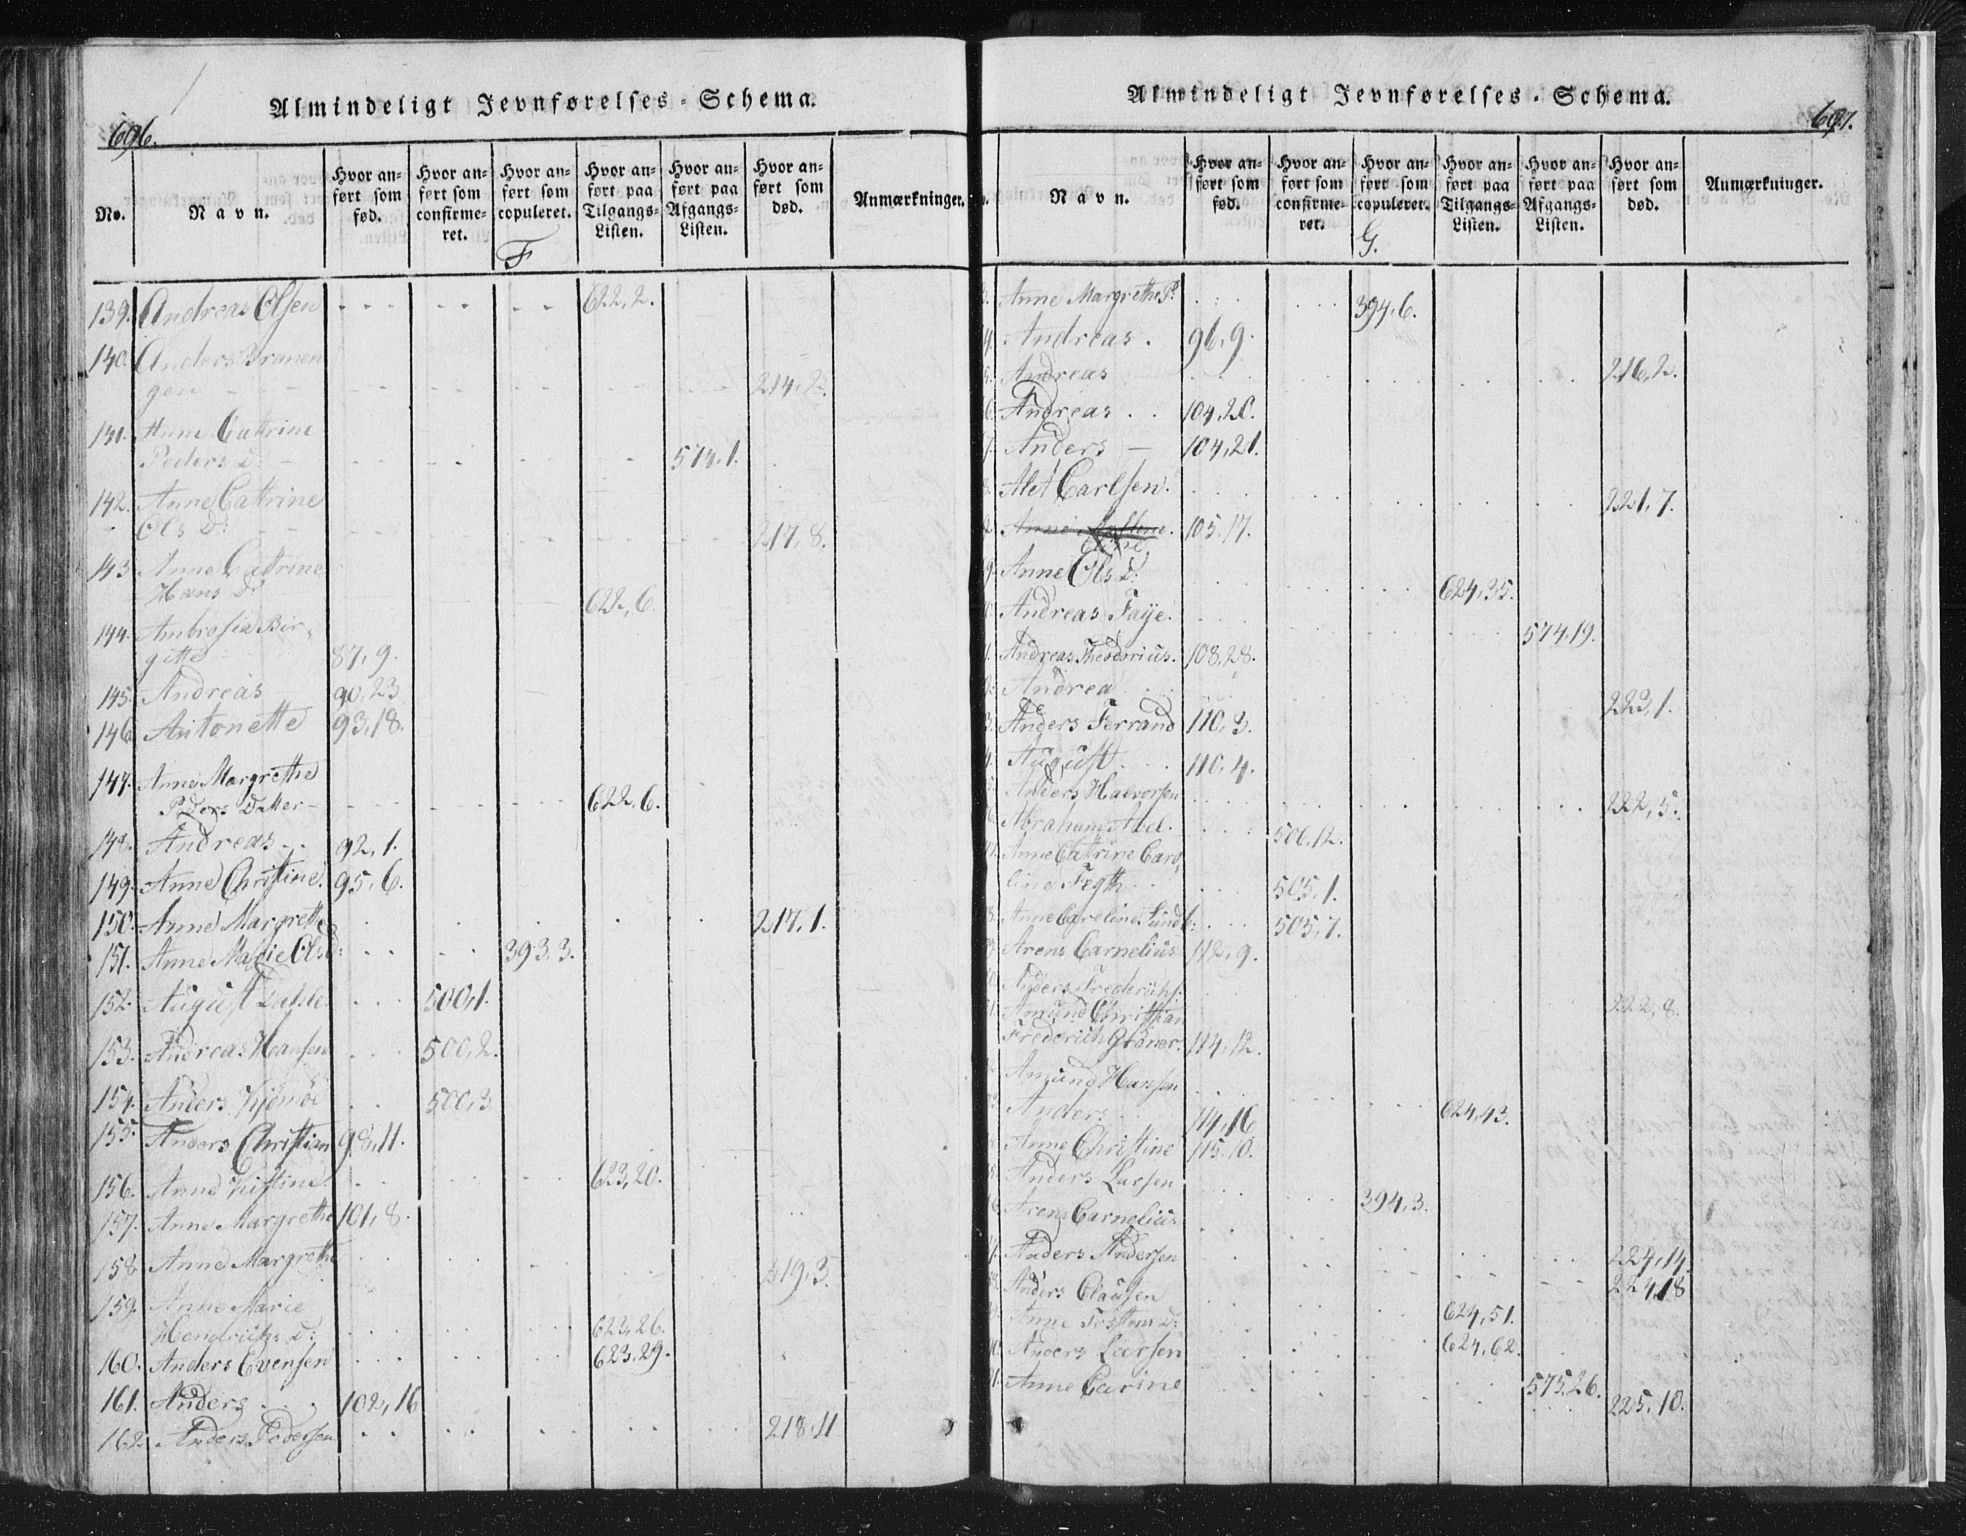 Almindeligt Jevnførelses-Schema.
696.
No.
Navn.
Hvor anført som fød.
Hvor anført som confirmeret.
Hvor anført som copuleret.
Hvor anført paa Tilgangs-Listen.
Hvor anført paa Afgangs-Listen.
Hvor anført som død.
Anmærkninger.
F
139. Andreas Olsen 622,2.
140. Anders
gen 214,2.
141. Anne Cattrine
Peders D: 574,1.
142. Anne Catrine
Ols D: 217,8.
143. Anne Catrine
Hans D: 622,6.
144. Ambrosia Bir-
gitte 87,9.
145. Andreas 90,23
146. Antonette 93,18.
147. Anne Margrethe
Peders Datter 622,6.
148. Andreas 92,1.
149. Anne Christine. 95,6.
150. Anne Margrethe 217,1.
151. Anne Marie Olsd: 393,3.
152. August Dahle 500,1.
153. Andreas Hansen 500,2.
154. Anders 500,3
155. Anders Christian 98,11.
156. Anne Kistine 623,20.
157. Anne Margrethe 101,8.
158. Anne Margrethe 219,3.
159. Anne Marie
Hendrichs D: 623,26.
160. Anders Evensen 623,29.
161. Anders 102,16
162. Anders Pedersen 218,11
Almindeligt Jevnførelses-Schema.
697.
Navn.
Hvor anført som fød.
Hvor anført som confirmeret.
Hvor anført som copuleret.
Hvor anført paa Tilgangs-Listen.
Hvor anført paa Afgangs-Listen.
Hvor anført som død.
Anmærkninger.
G.
Anne Margrethe P: 394,6.
Andreas. 96,9.
Andreas 216,2.
Andreas 104,20.
Anders 104,21.
Alet Carlsen. 221,7.
Anne 105,17.
Anne Ols D: 624,35.
Andreas Faye. 574,19.
Andreas Theodorius. 108,28.
Andrea 223,1.
Anders Ferrand 110,3.
August 110,4.
Anders Halvorsen 222,5.
Abraham Abel. 506,12.
Anne Catrine Caro-
line Fegth 505,1.
Anne Caroline Lund 505,7.
Arens Carnelius 112,9.
Anders Frederichs. 222,8.
Amund Christian
Frederich Grøner. 114,12.
Amund Hansen 624,43.
Anders 114,16
Anne Christine 115,10.
Anders Larsen 394,3.
Arens Carnelius
Anders Andersen 224,14.
Anders Clausen 224,18
Anne Tostens D: 624,51.
Anders Larsen 624,62.
Anne Carine 575,26. 225,10.